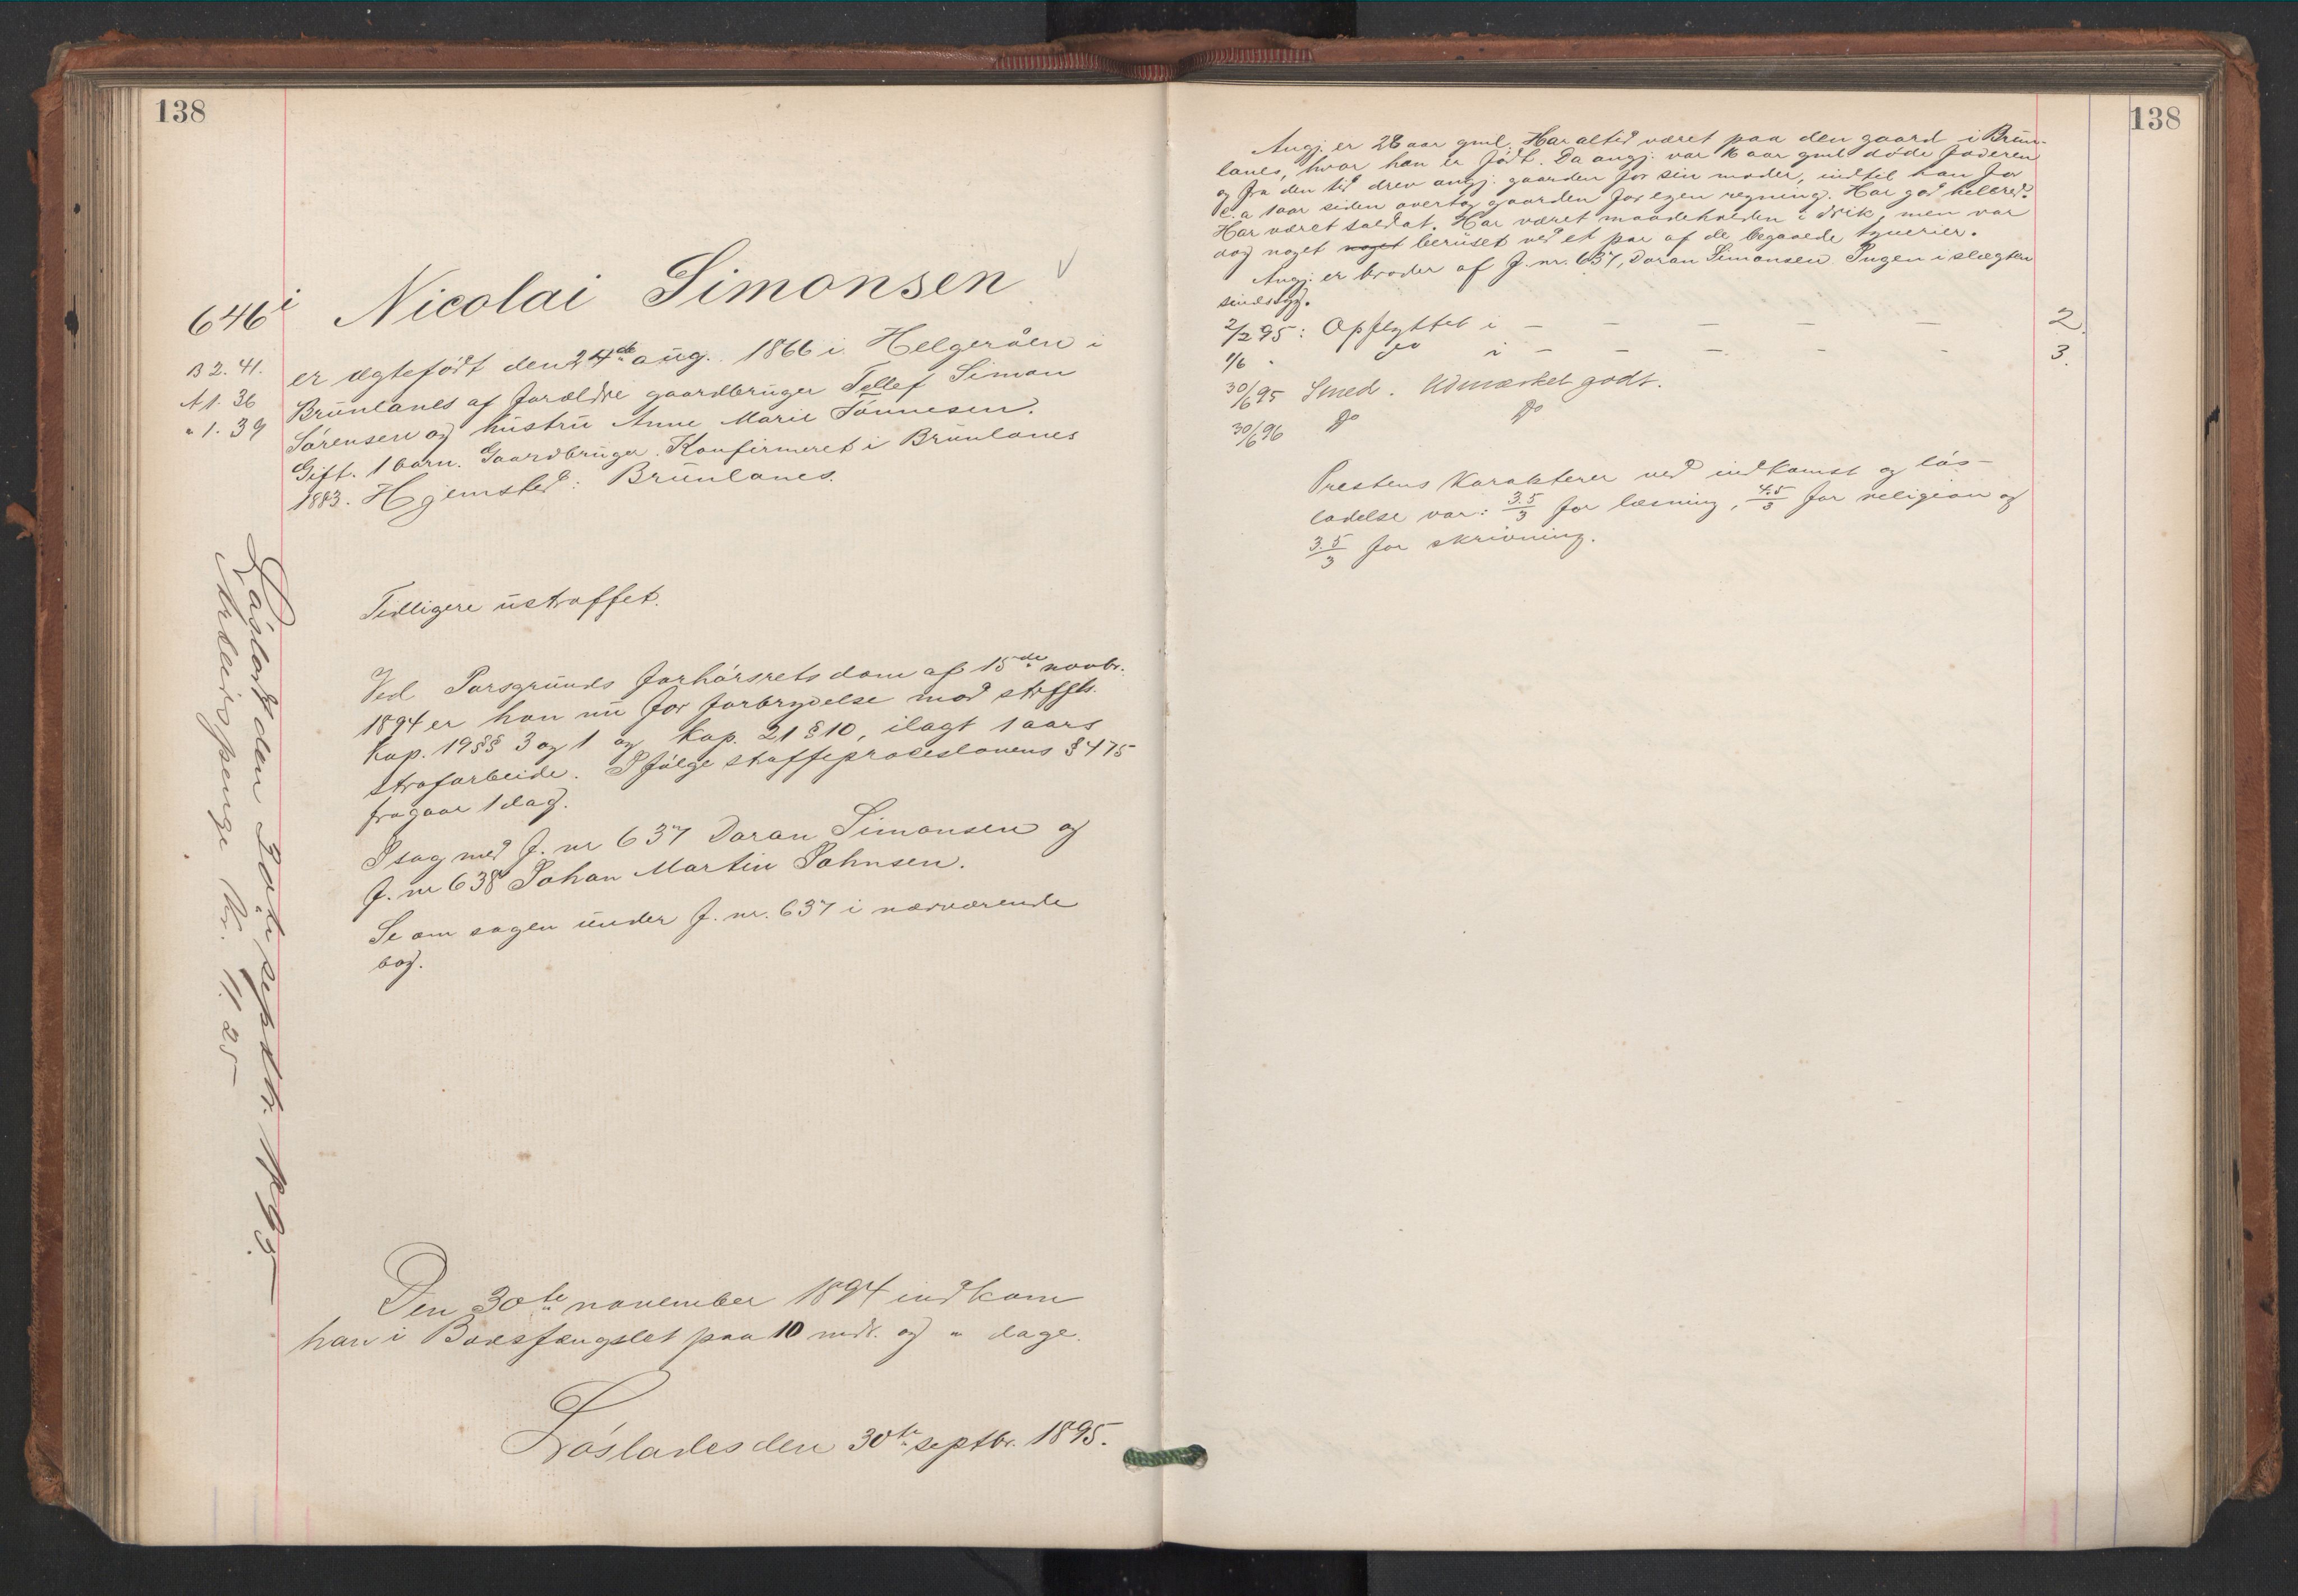 138
646 i Nicolai Simonsen
B 2. 41.
A 1. 36
" 1. 39
er ægtefødt den 24de aug. 1866 i Helgeråen i
Brunlanes af forældre gaardbruger Tellef Simon
Sørensen og hustru Anne Marie Tønnesen.
Gift. 1 barn. Gaardbruger. Konfirmeret i Brunlanes
1883. Hjemsted: Brunlanes.
Løsladt den 30te septbr. 1895
Arbeidspenge kr. 11.25
Tidligere ustraffet.
Ved Porsgrunds forhørsrets dom af 15de novbr.
1894 er han nu for forbrydelse mod strffl.
kap. 19 §§ 3 og 1 og kap. 21 § 10, ilagt 1 aars
strafarbeide. Ifølge straffeproceslovens § 475
fragaar 1 dag.
I sag med J. nr 637 Doran Simonsen og
J. nr 638 Johan Martin Johnsen.
Se om sagen under J. nr. 637 i nærværende
bog.
Den 30te november 1894 indkom
han i Bodsfængslet paa 10 mdr. og " dage.
Løslades den 30te septbr. 1895.
138
Angj. er 28 aar gml. Har altid været paa den gaard i Brun-
lanes, hvor han er født. Da angj. var 16 aar gml døde faderen
og fra den tid drev angj. gaarden for sin moder, indtil han for
c.a 1 aar siden overtog gaarden for egen regning. Har god helbred.
Har været soldat. Har været maadeholden i drik, men var
dog noget noget beruset ved et par af de begaaede tyverier.
Angj. er broder af J. nr. 637, Doran Simonsen. Ingen i slægten
sindssyg.
2/2 95: Opflyttet i – – – – – 2.
1/6 " do i – – – – – 3.
30/6 95 Smed. Udmærket godt.
30/6 96 do do
Prestens karakterer ved indkomst og løs-
ladelse var: 3.5/3 for læsning, 4.5/3 for religion og
3.5/3 for skrivning.